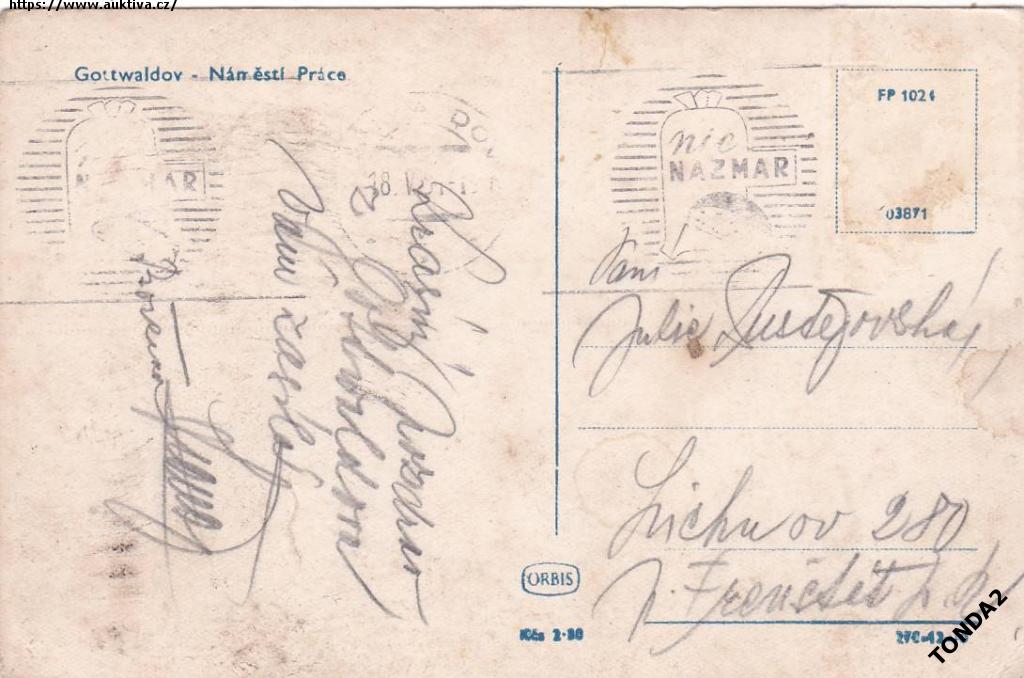 https://www.auktiva.cz/
Gottwaldov - Náměstí Práce
FP 1024
03871
nic
NAZMAR
NAZMAR
38
Krásný pozdrav
z Gottwaldova
Vám zasílá
Paní
Julie
Lichnov 280
p. Frenštát p. R.
ORBIS
Kčs 2·80
TONDA2